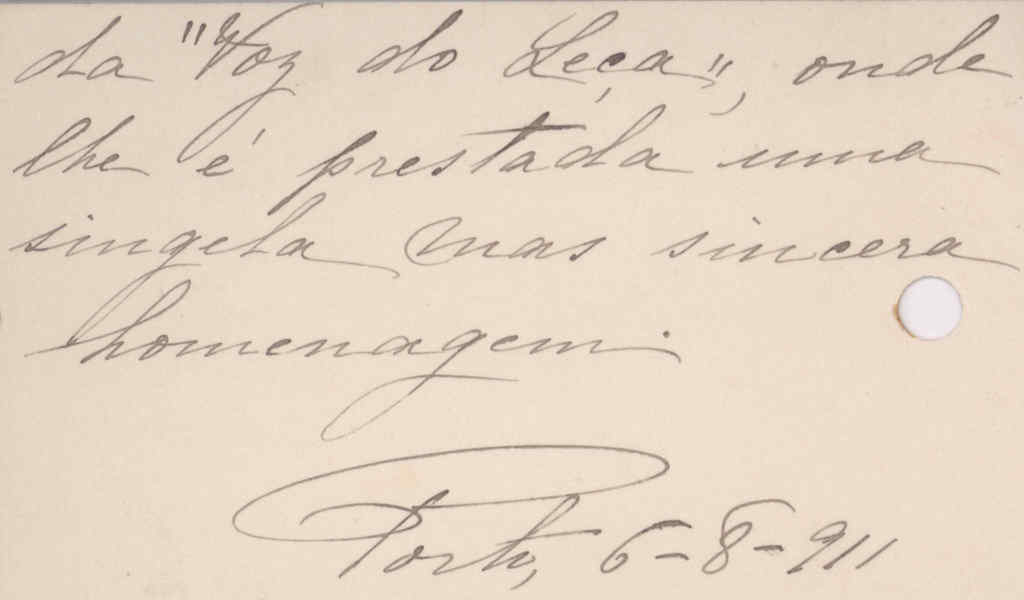 da "Voz do Leça", onde
lhe é prestada uma
singela mas sincera
homenagem.
Porto, 6-8-911